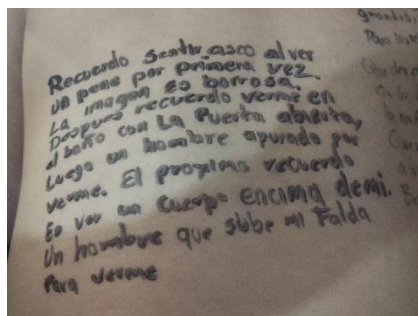 Recuerdo sentir asco al ver
un pene por primera vez.
La imagen es borrosa.
Despues recuerdo verme en
el baño con La Puerta abierta,
Luego un hombre apurado por
verme. El proximo recuerdo
Es ver un cuerpo encima demi.
Un hombre que sube mi Falda
Para verme